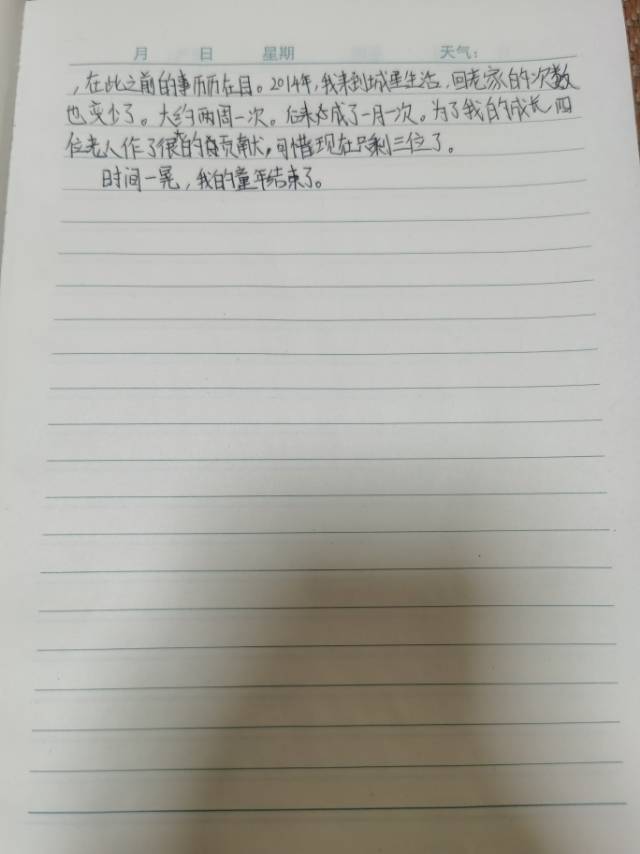 月 日 星期 天气：
，在此之前的事历历在目。2014年，我来到城里生活，回老家的次数
也变少了。大约两周一次。后来改成了一月次。为了我的成长，四
位老人作了很大的贡献，可惜现在只剩三位了。
时间一晃，我的童年结束了。